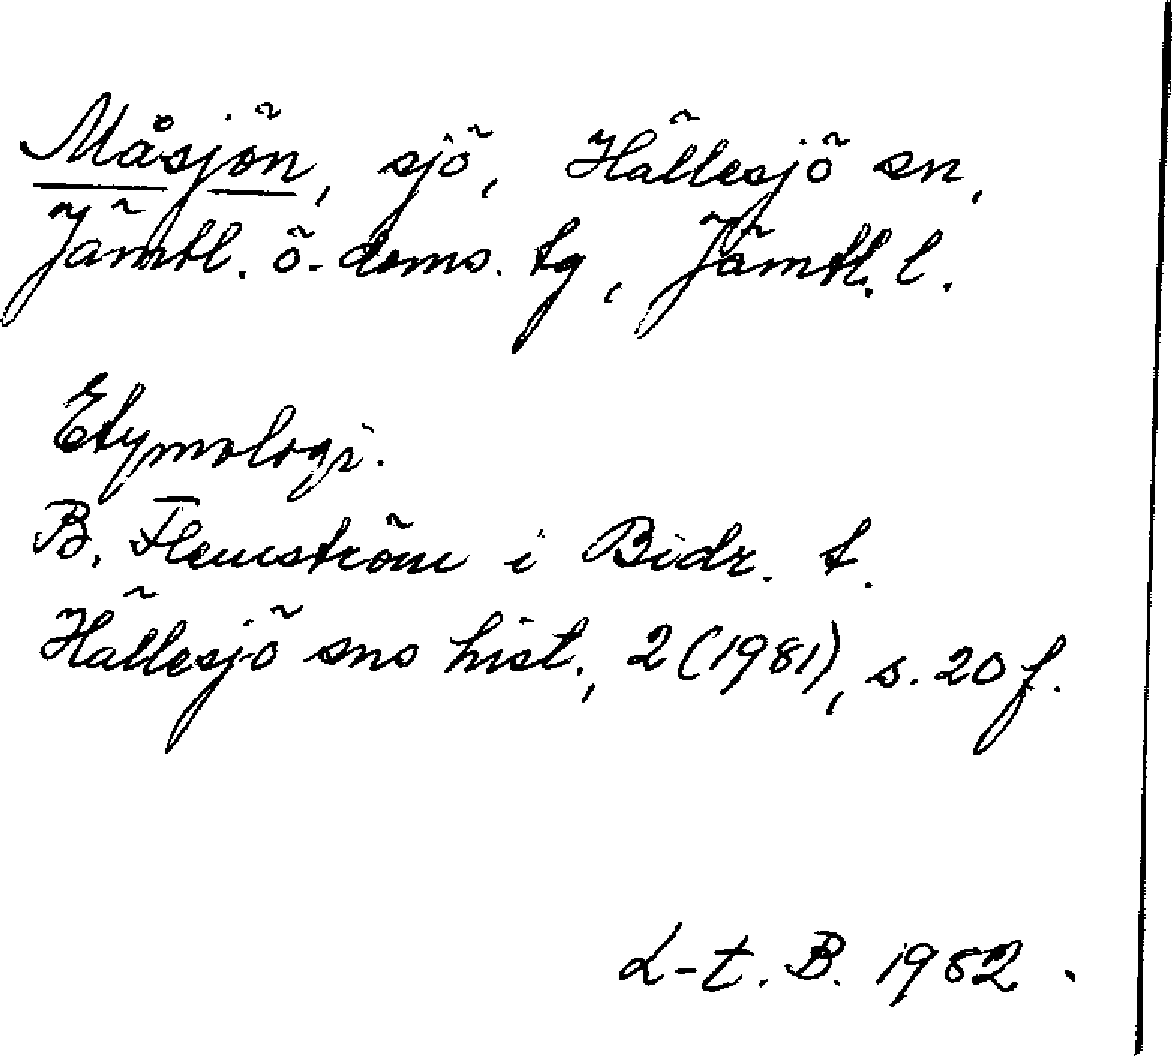 Måsjön, sjö, Hällesjö sn,
Jämtl. ö. doms. tg, Jämtl. l.
Etymologi.
B. Flemström i Bidr. t.
Hällesjö sns hist., 2 (1981), s. 20 f.
L-t. B. 1982.